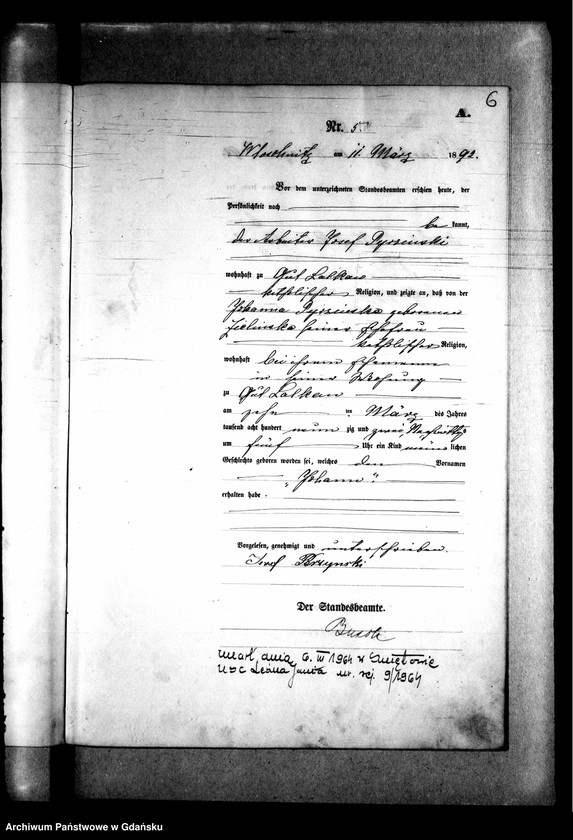 6
A.
Nr. 5
am 11. März 1892.
Vor dem unterzeichneten Standesbeamten erschien heute, der
Persönlichkeit nach
be kannt,
der Arbeiter Josef Pyrszinski
wohnhaft zu Gut Lalkau
katholischer Religion, und zeigte an, daß von der
Johanna geborenen
Zielinska seiner Ehefrau
katholischer Religion,
wohnhaft bei ihrem Ehemanne
in seiner Wohnung
zu Gut Lalkau
am zehn ten März des Jahres
tausend acht hundert neun zig und zwei, Nachmittags
um fünf Uhr ein Kind männ lichen
Geschlechts geboren worden sei, welches den Vornamen
„Johann“
erhalten habe.
Vorgelesen, genehmigt und unterschrieben.
Josef
Der Standesbeamte.
zmarł dnia 6. III 1964 w Smętowie
USC Leśna Jania nr. rej. 9/1964
Archiwum Państwowe w Gdańsku